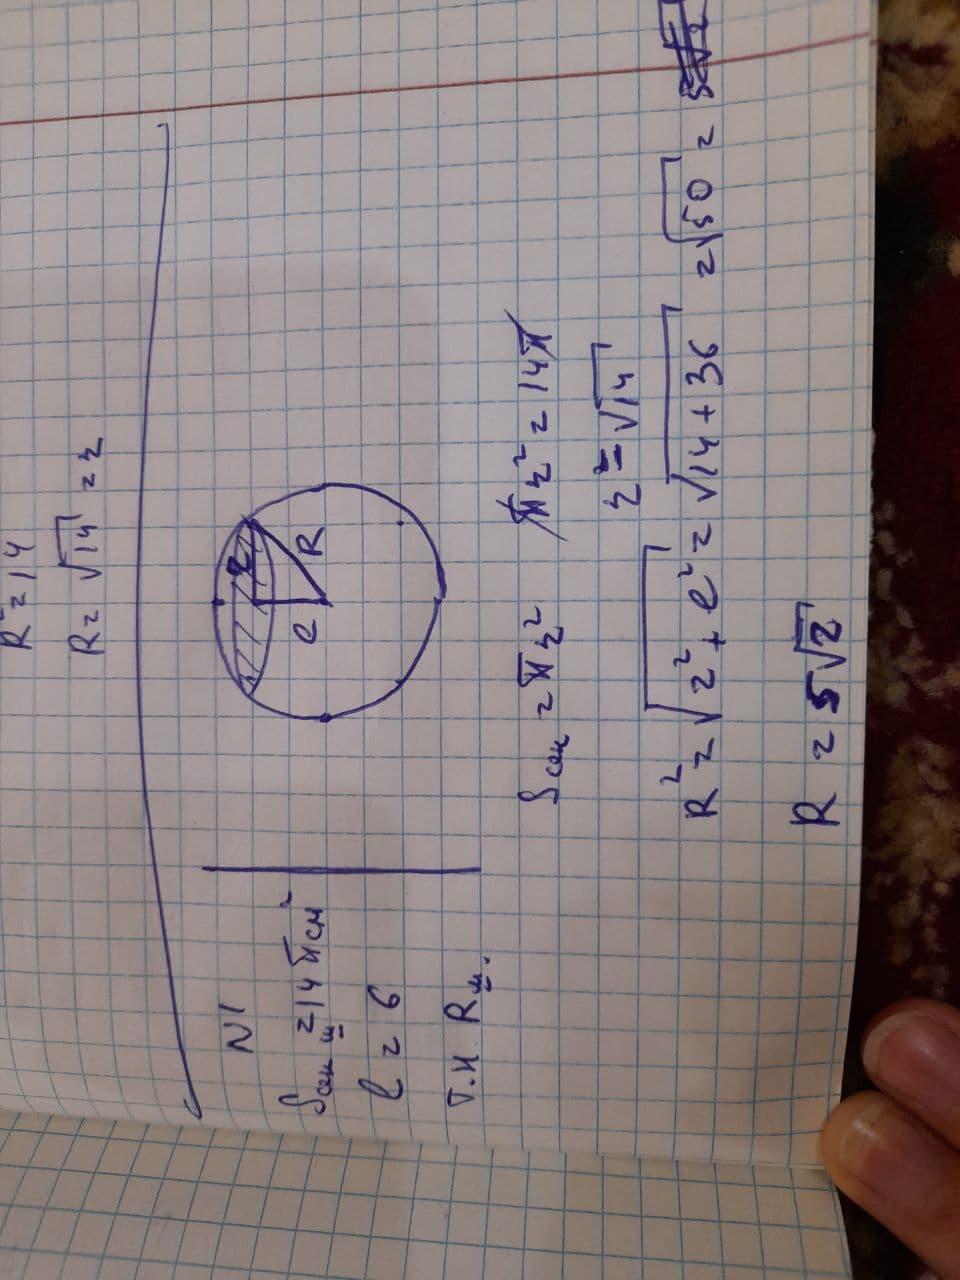 R² = 14
R = √14 = r
N1
Sсек ш = 14π см²
l = 6
Т.Н Rш.
r
l
R
Sсек = πr² πr² = 14π
r = √14
R² = √r² + l² = √14 + 36 = √50 =
R = 5√2